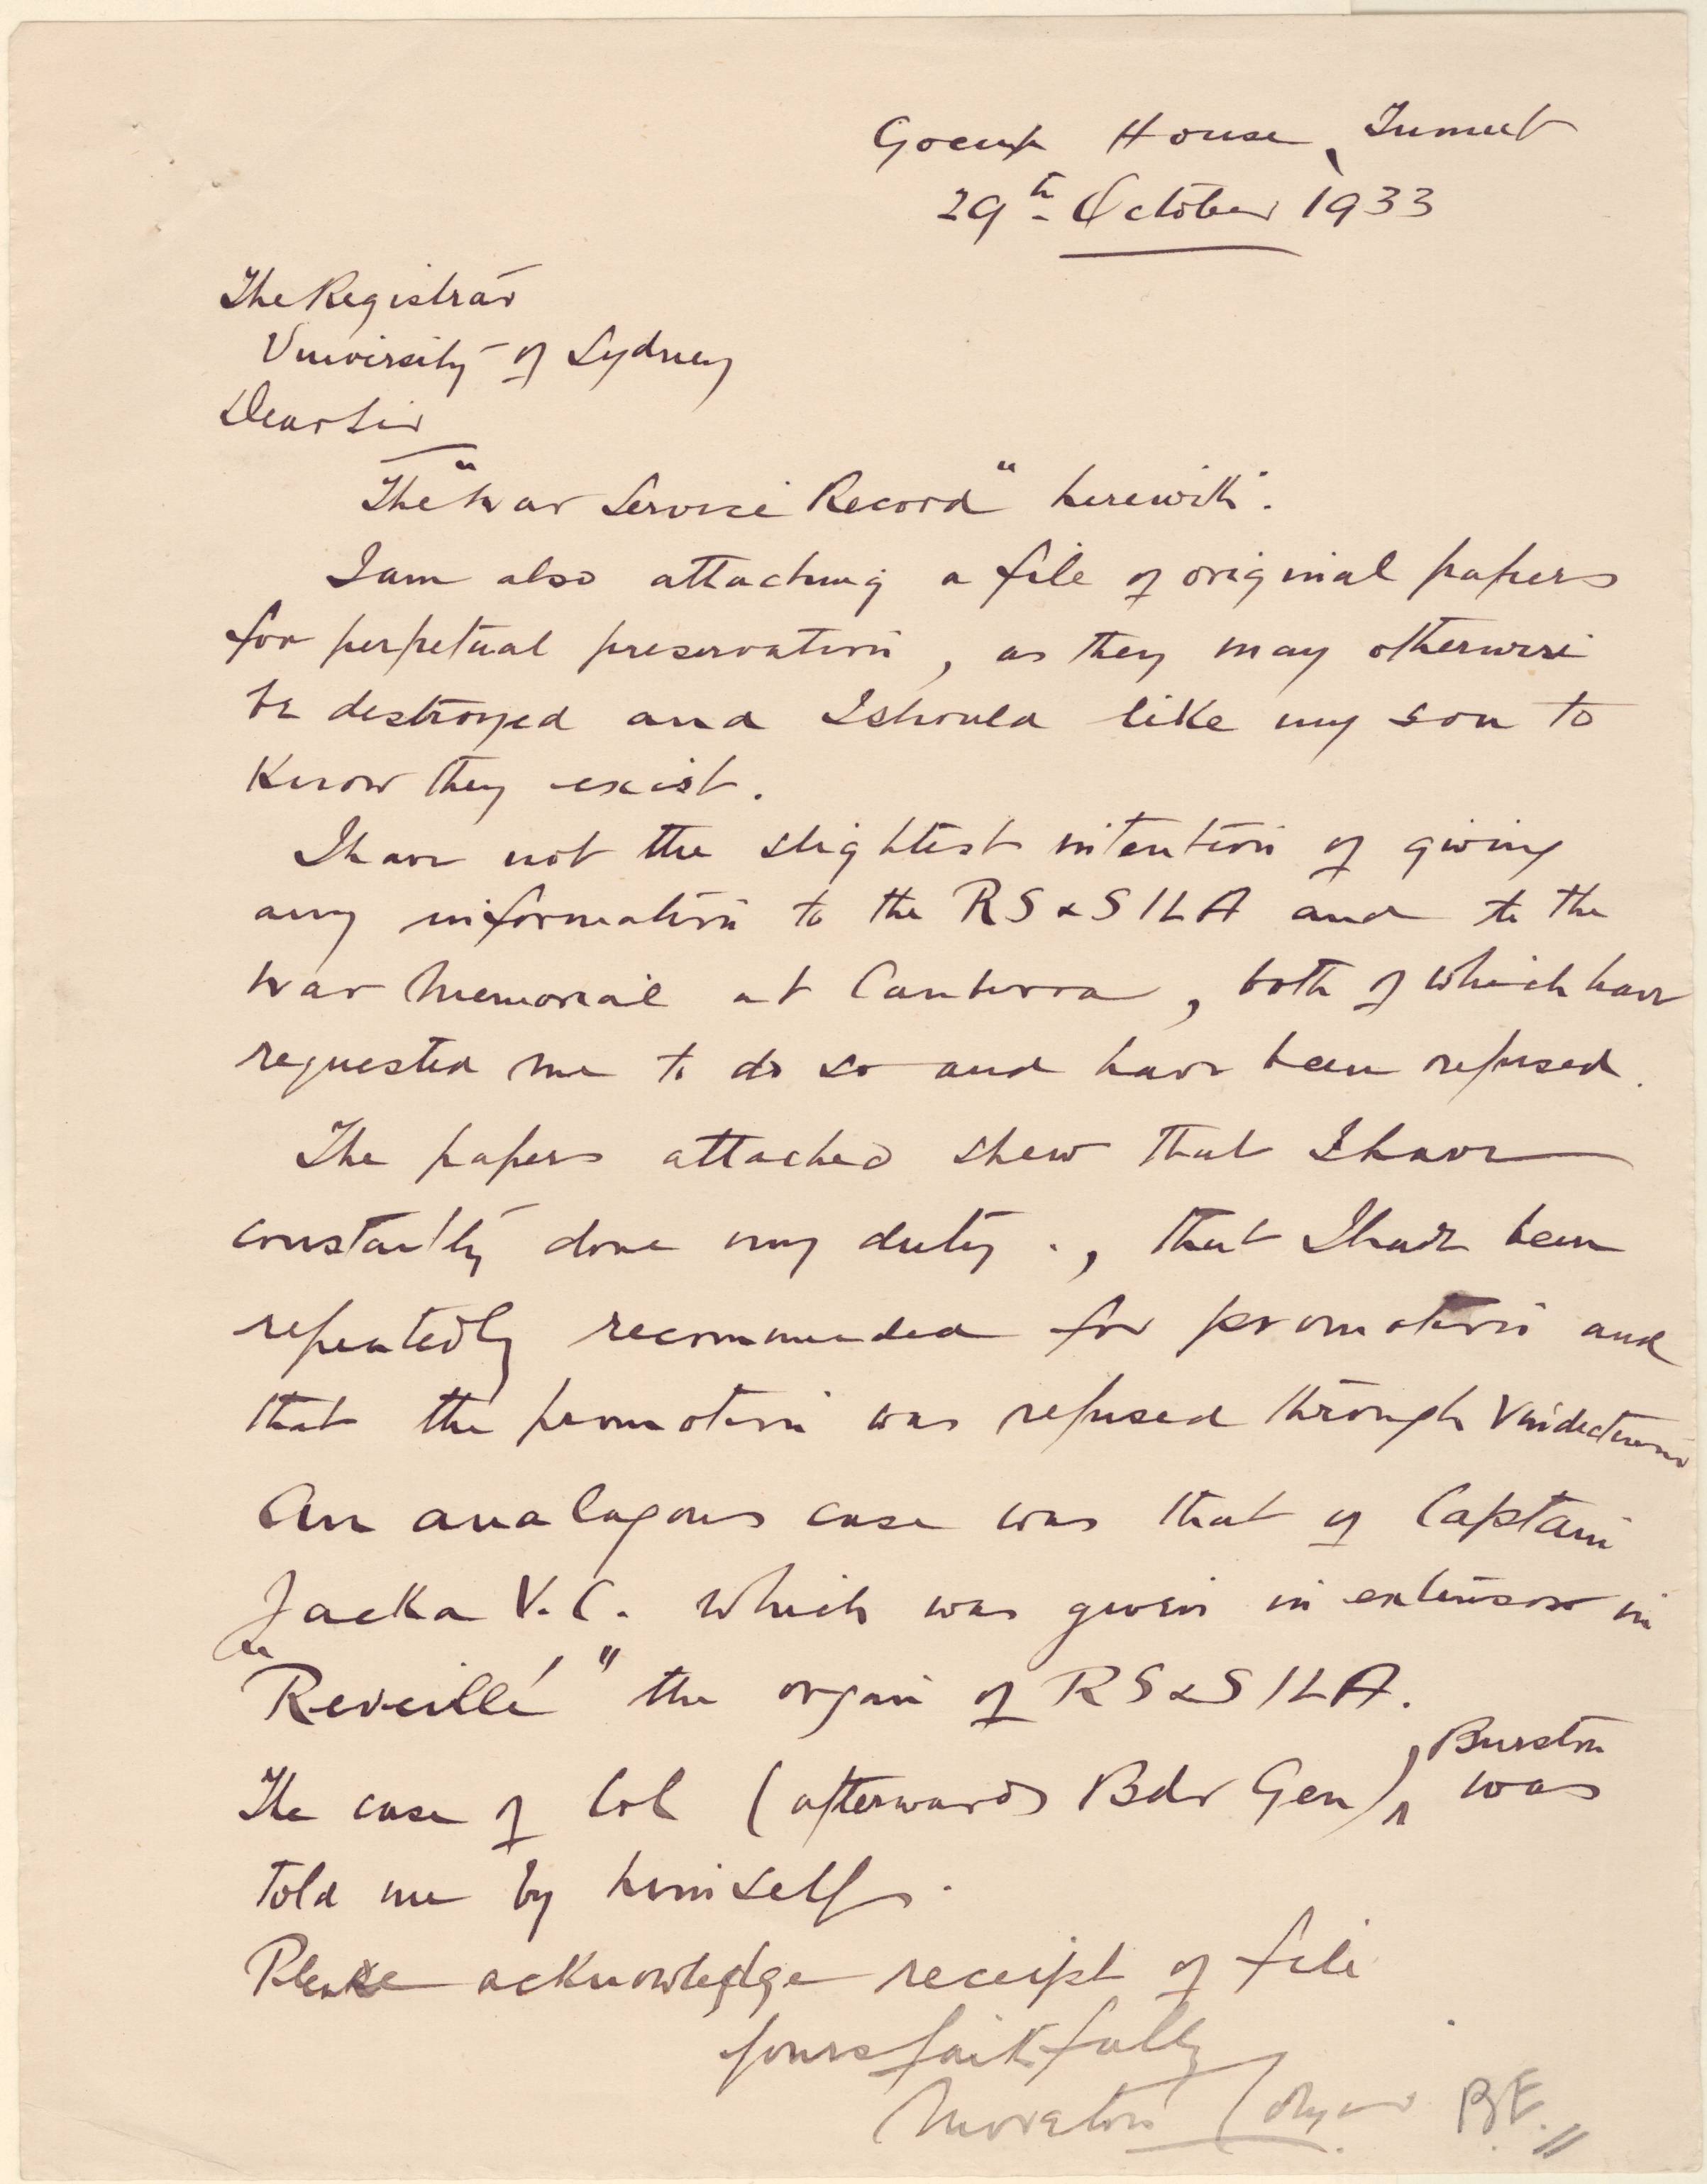 Gocup House, Tumut
29th October 1933
The Registrar
University of Sydney
Dear Sir
The "War Service Record" herewith.
I am also attaching a file of original papers
for perpetual preservation, as they may otherwise
be destroyed and I should like my son to
know they exist.
I have not the slightest intention of giving
any information to the RS & SILA and to the
War Memorial at Canberra, both of which have
requested me to do so and have been refused.
The papers attached shew that I have
constantly done my duty., that I have been
repeatedly recommended for promotion and
that the promotion was refused through
An analogous case was that of Captain
Jacka V.C. which was given in extenso in
"Reveillé" the organ of RS & SILA.
The case of Col (afterwards Bdr Gen), Burston was
told me by himself.
Please acknowledge receipt of file
Yours faithfully
Moreton B.E.